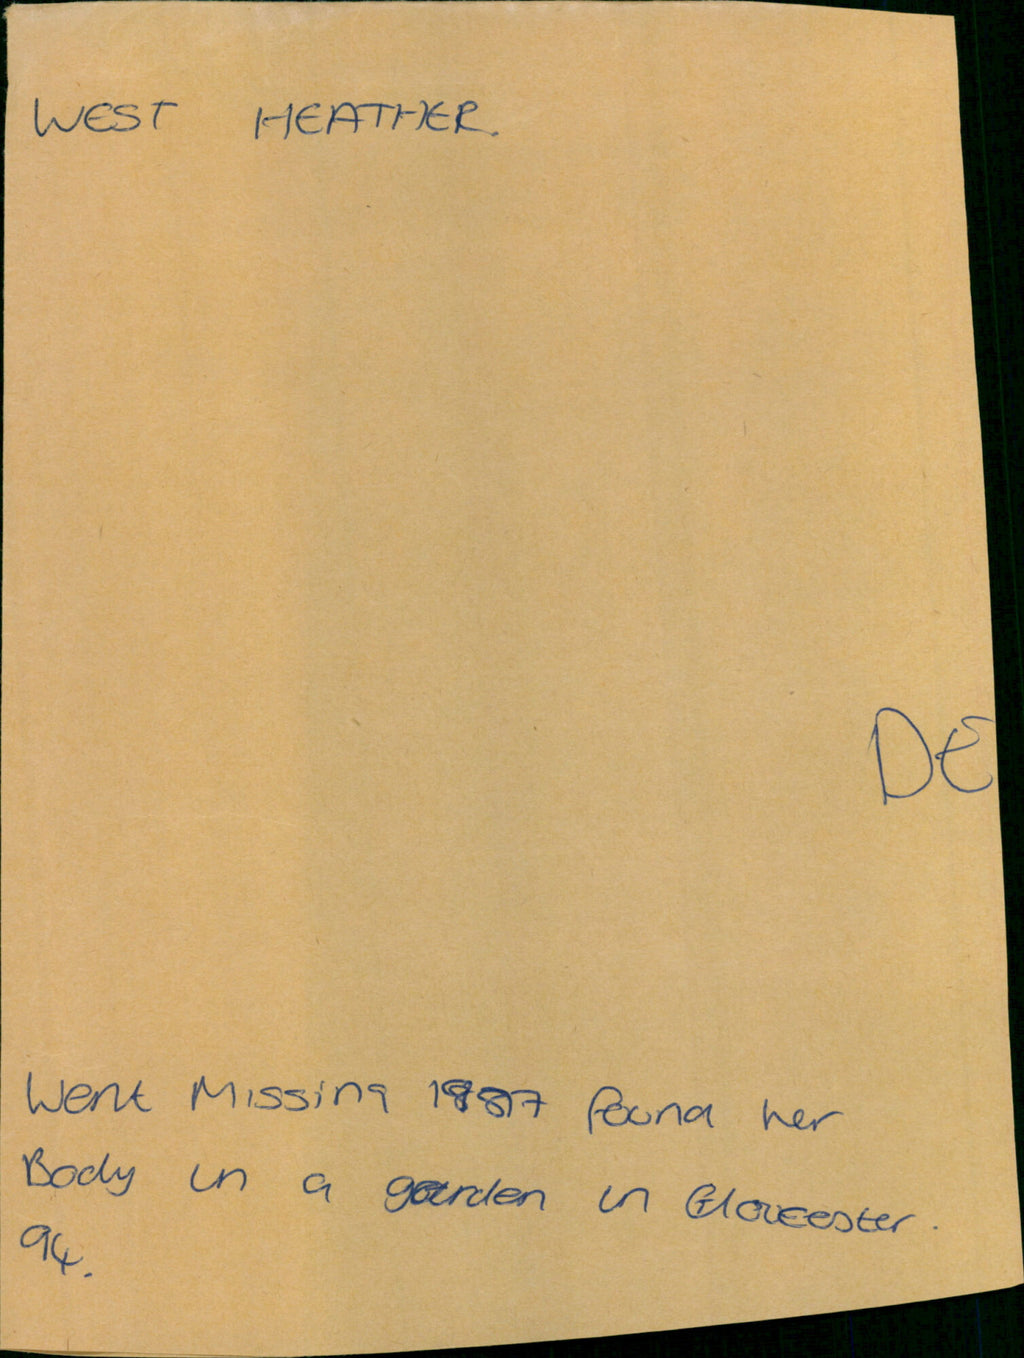 WEST HEATHER.
DE
Went Missing 1987 found her
Body in a garden in Gloucester.
94.